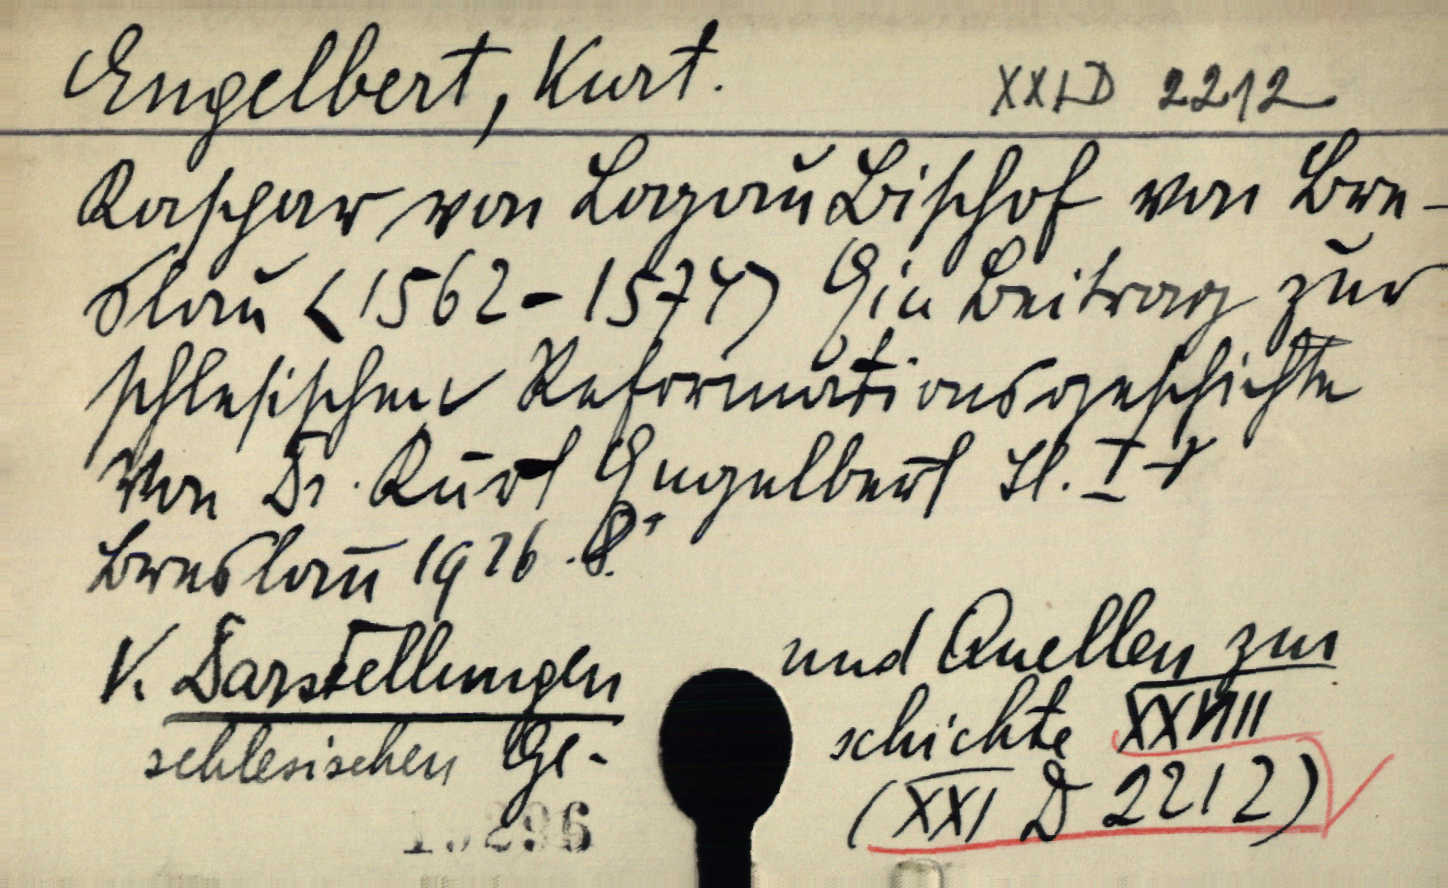 Engelbert, Kurt.
XXI D 2212
Kaspar von Logau Bischof von Bre-
slau (1562-1574) Ein Beitrag zur
schlesischen Reformationsgeschichte
Von Dr. Kurt Engelbert Tl. I
Breslau 1926. 8°
V. Darstellungen und Quellen zur
schlesischen Ge- schichte XXVIII
(XXI D 2212)